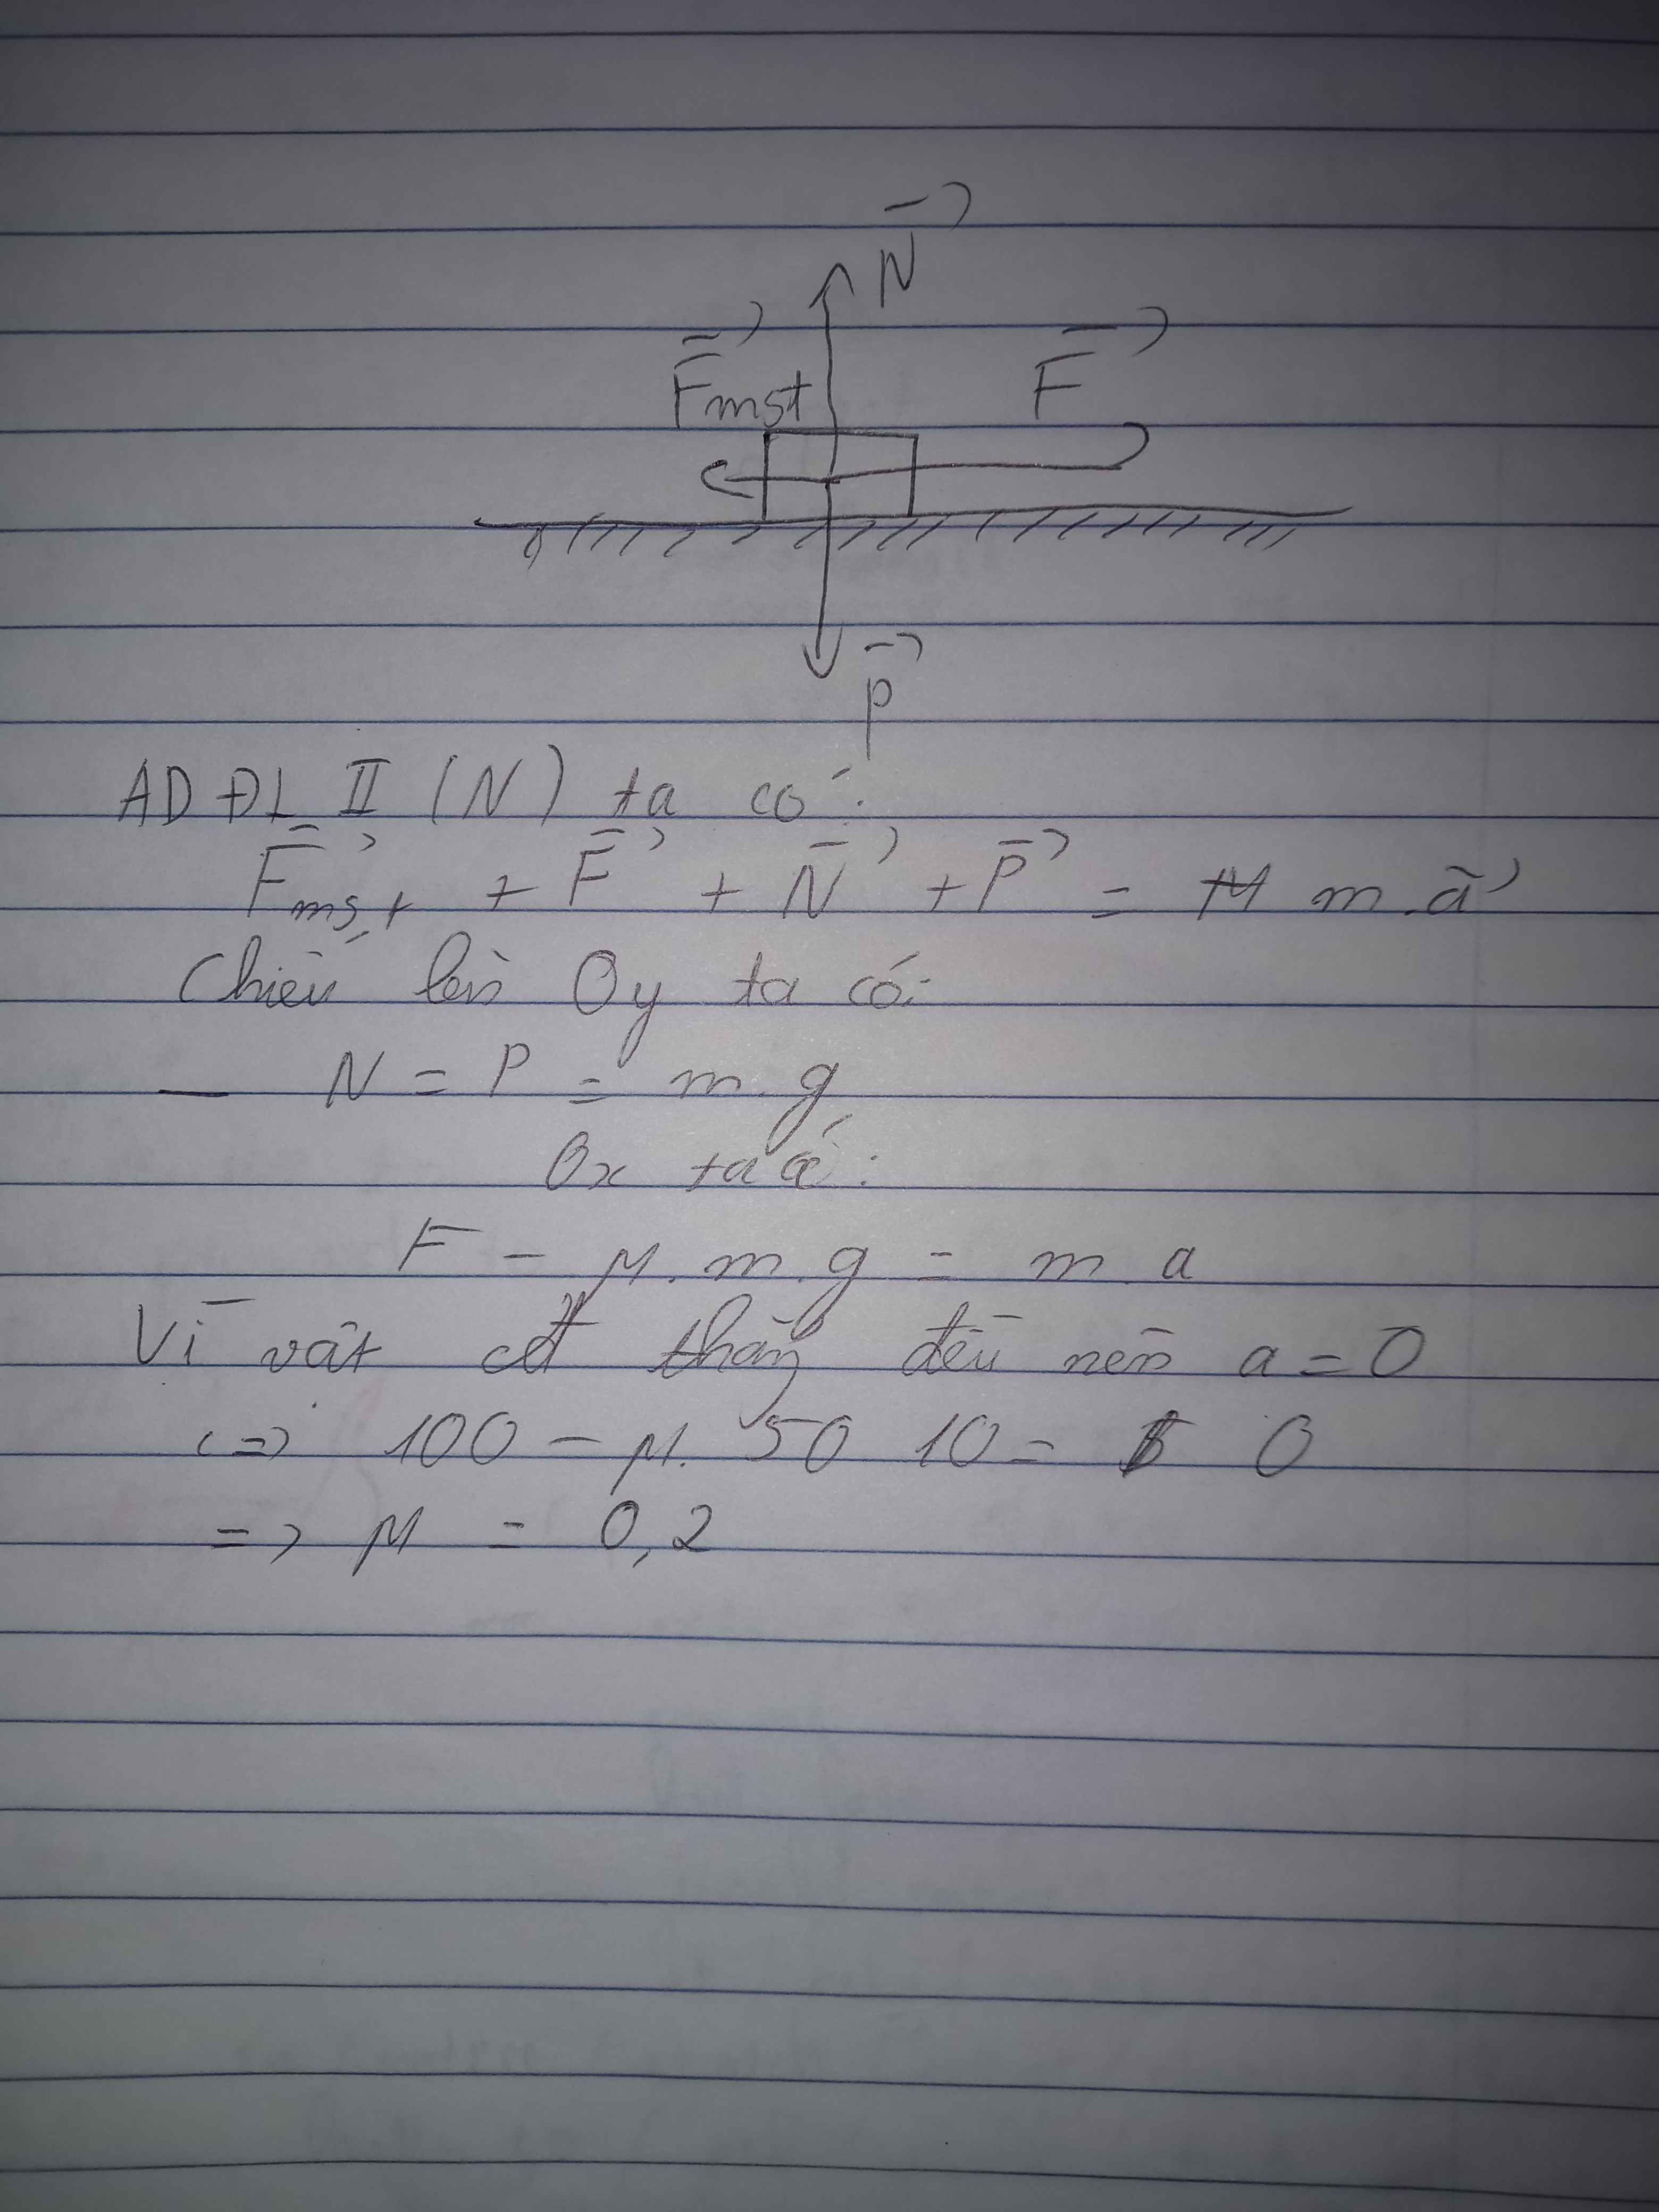 N
Fmst
F
P
AD ĐL II (N) ta có:
Fmst + F + N + P = m.a
Chiếu lên Oy ta có:
N = P = m.g
Ox ta có:
F - μ.m.g = m.a
Vì vật cđ thẳng đều nên a = 0
<=> 100 - μ. 50 10 = 0
=> μ = 0,2